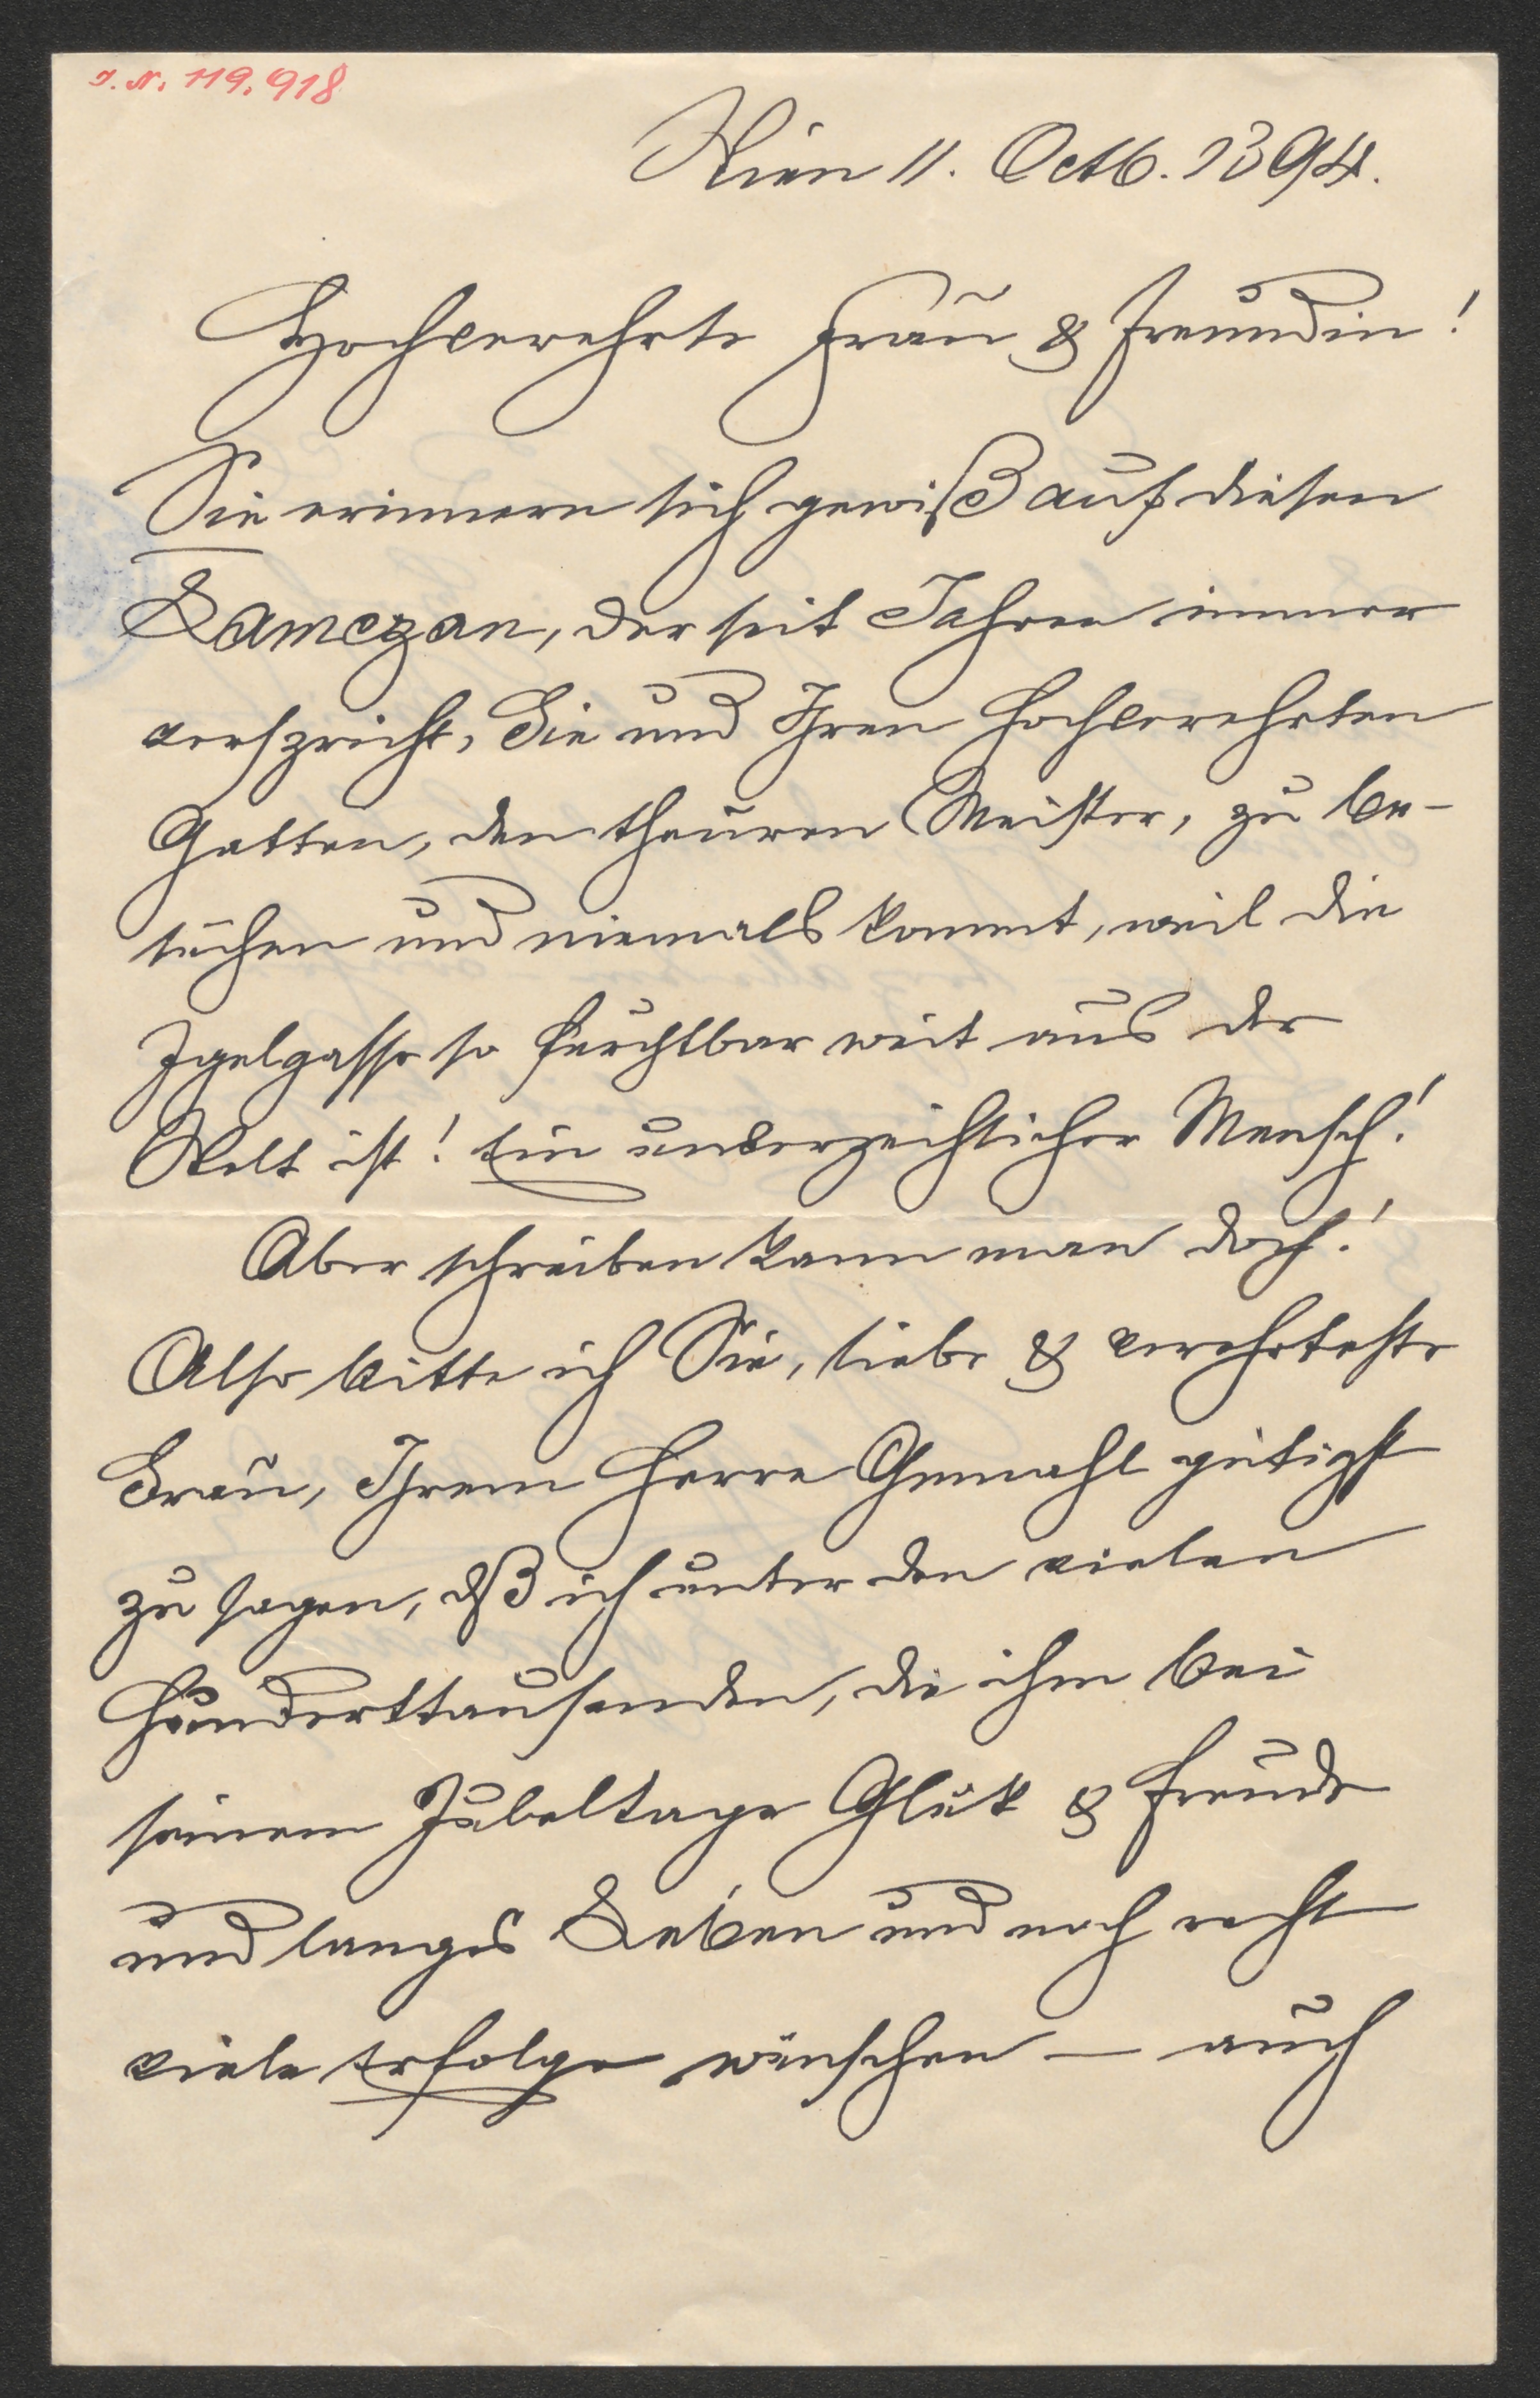 J. N. 119.918
Wien 11. Octb. 1894.
Hochverehrte Frau & Freundin!
Sie erinnern sich gewiß auf diesen
Lamezan, der seit Jahren immer
verspricht, Sie und Ihren hochverehrten
Gatten, den theuren Meister, zu be-
suchen und niemals kommt, weil die
Igelgasse so furchtbar weit aus der
Welt ist! Ein unverzeihlicher Mensch!
Aber schreiben kann man doch!
Also bitte ich Sie, liebe & verehrteste
Frau, Ihrem Herrn Gemahl gütigst
zu sagen, dß ich unter den vielen
Hunderttausenden, die ihm bei
seinem Jubeltage Glük & Freude
und langes Leben und noch recht
viele Erfolge wünschen – auch